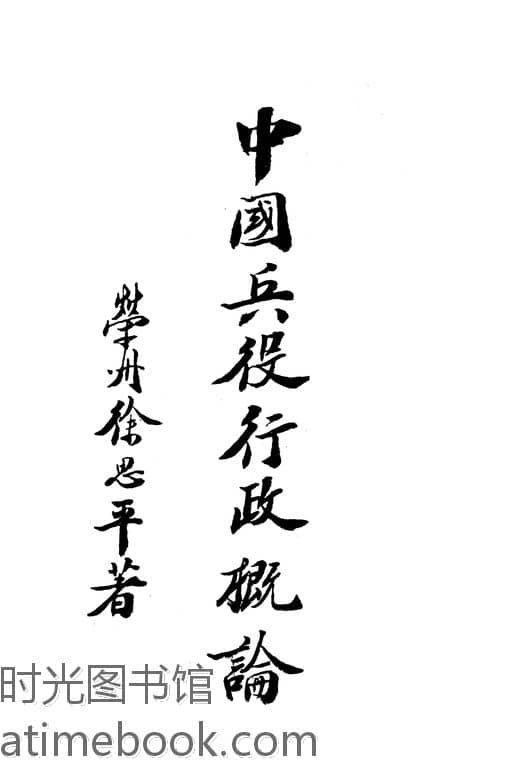 中國兵役行政概論
榮州徐思平著
时光图书馆
atimebook.com